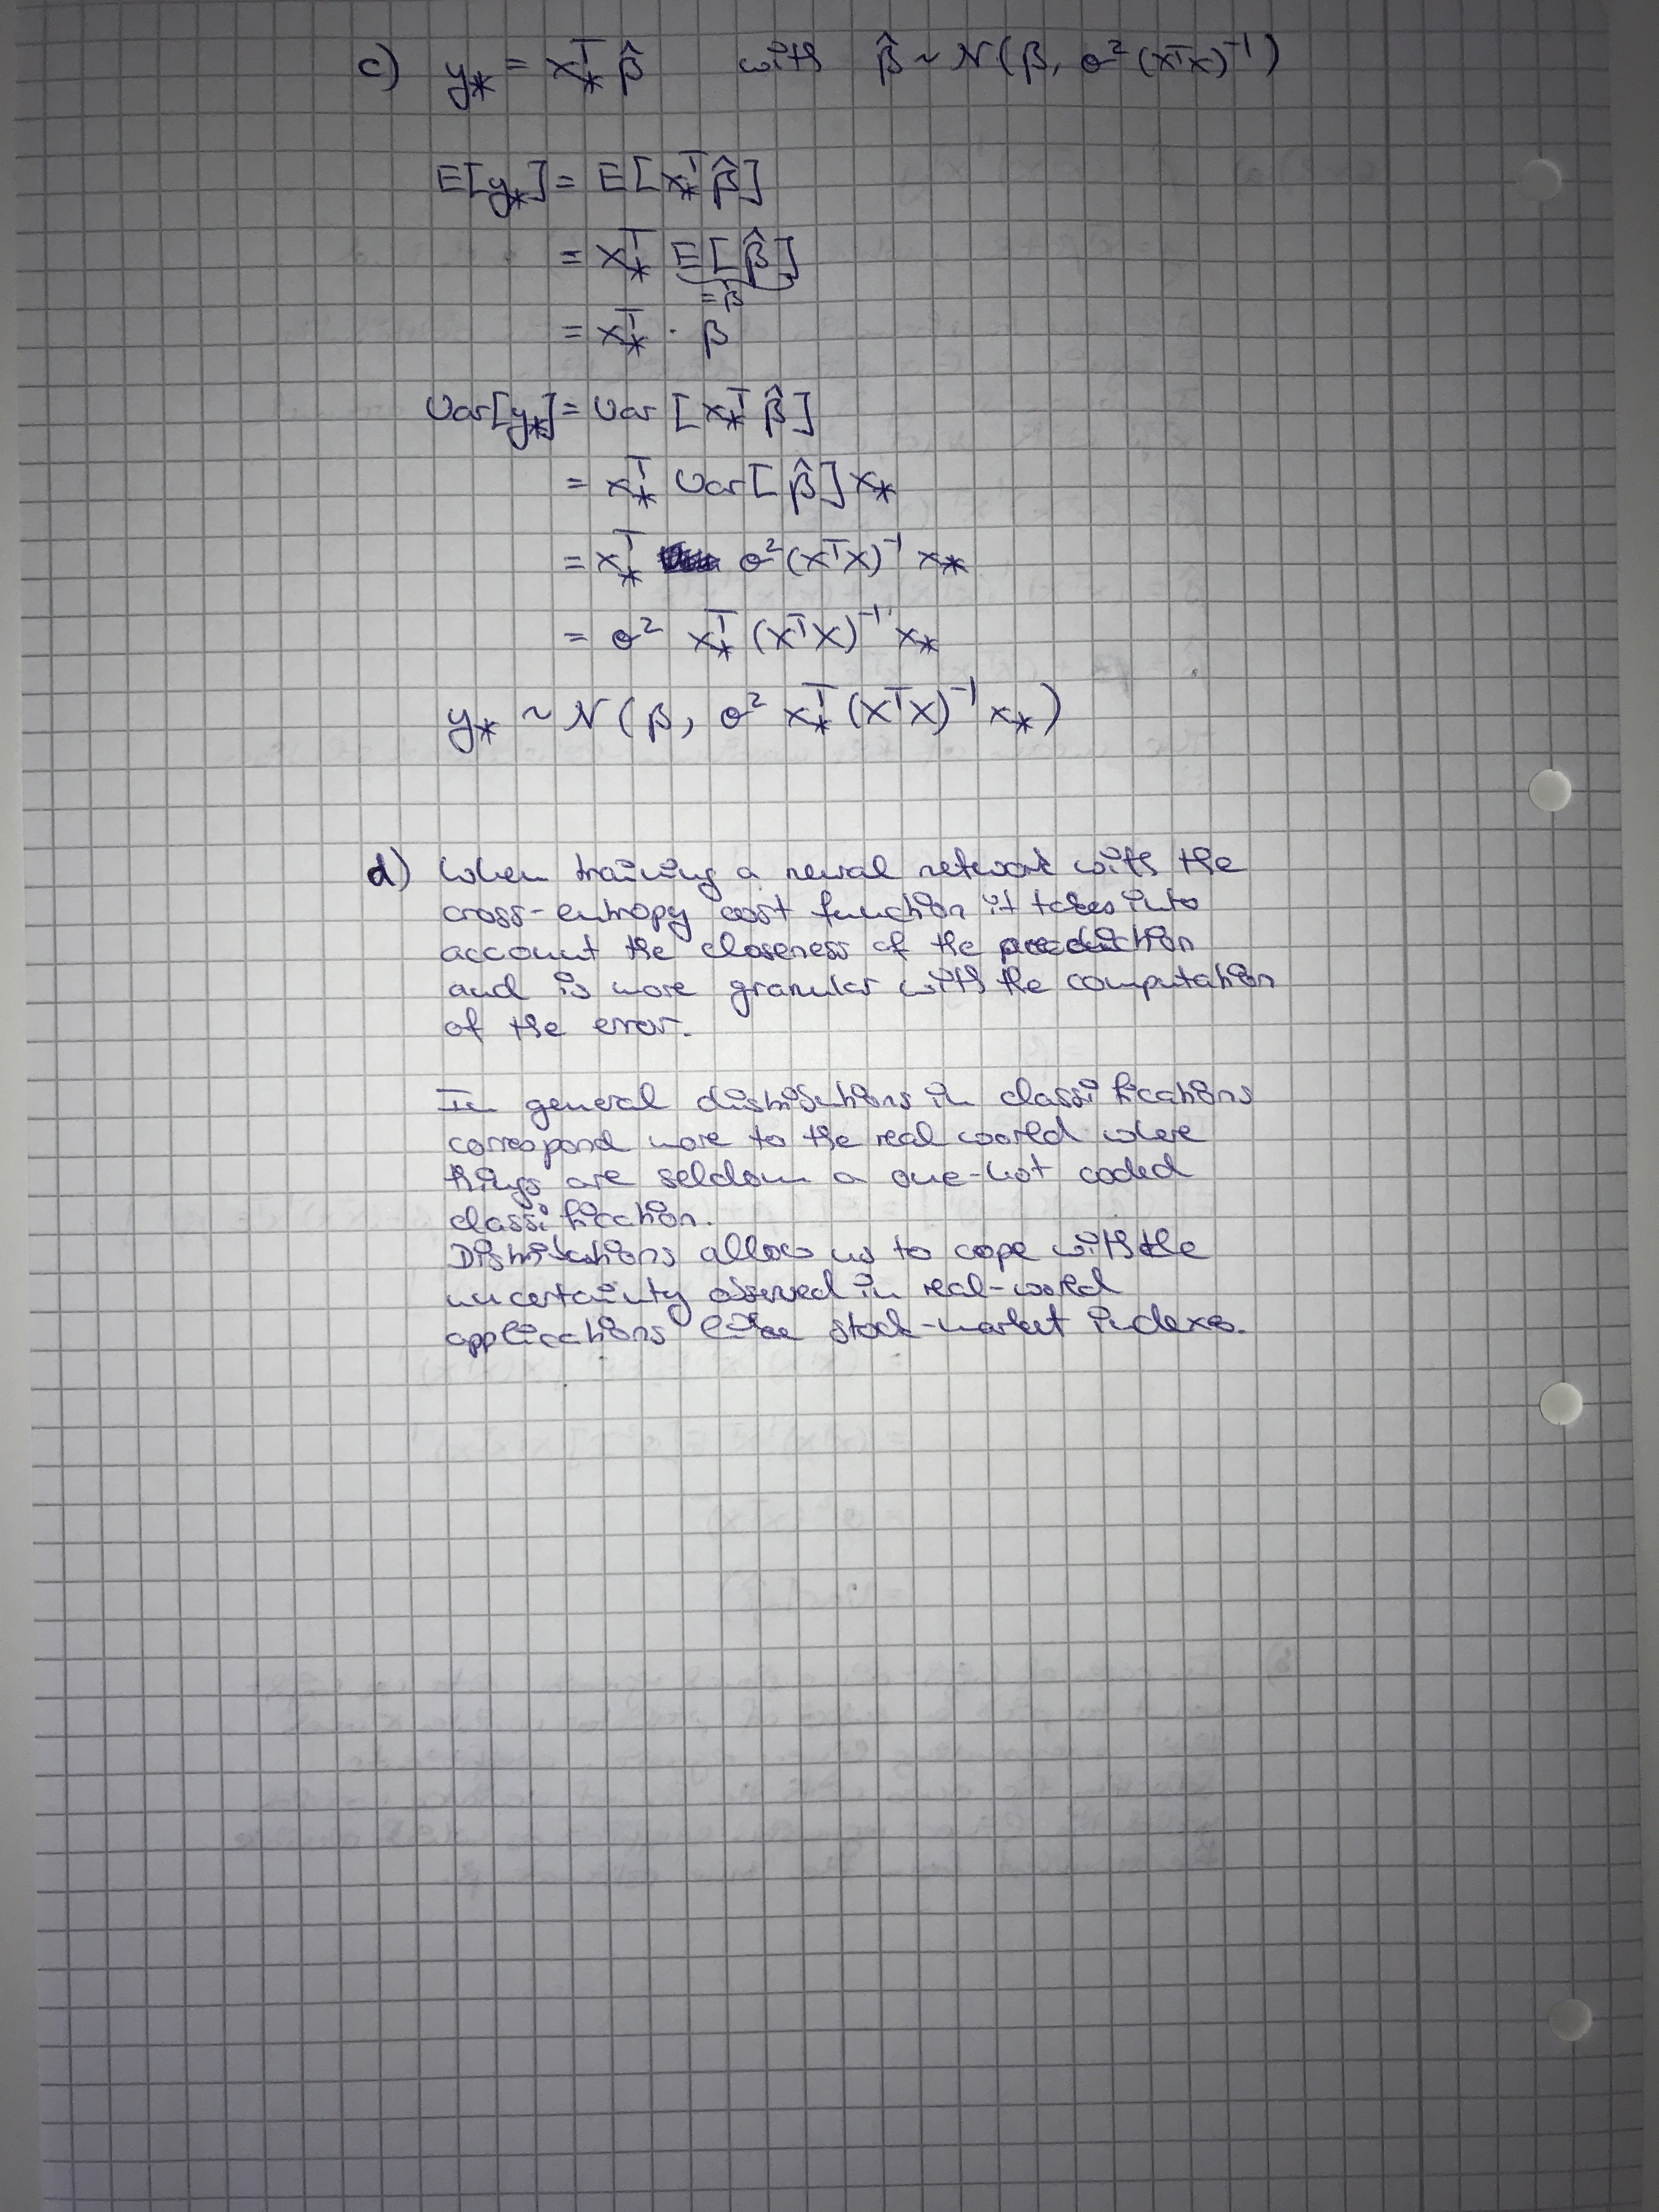 c) y* = x*ᵀ β̂ with β̂ ~ N(β, σ²(xᵀx)⁻¹)
E[y*] = E[x*ᵀ β̂]
= x*ᵀ E[β̂]
= β
= x*ᵀ · β
Var[y*] = Var[x*ᵀ β̂]
= x*ᵀ Var[β̂] x*
= x*ᵀ σ²(xᵀx)⁻¹ x*
= σ² x*ᵀ (xᵀx)⁻¹ x*
y* ~ N(β, σ² x*ᵀ (xᵀx)⁻¹ x*)
d) When training a neural network with the
cross-entropy cost function it takes into
account the closeness of the prediction
and is more granular with the computation
of the error.
In general distributions in classifications
correspond more to the real world where
things are seldom a one-hot coded
classification.
Distributions allow us to cope with the
uncertainty observed in real-world
applications like stock-market indexes.